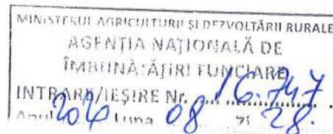 MINISTERUL AGRICULTURII ȘI DEZVOLTĂRII RURALE
AGENȚIA NAȚIONALĂ DE
ÎMBUNĂTĂȚIRI FUNCIARE
INTRARE/IEȘIRE Nr. 16.747
Anul Luna 08 Zi 28.